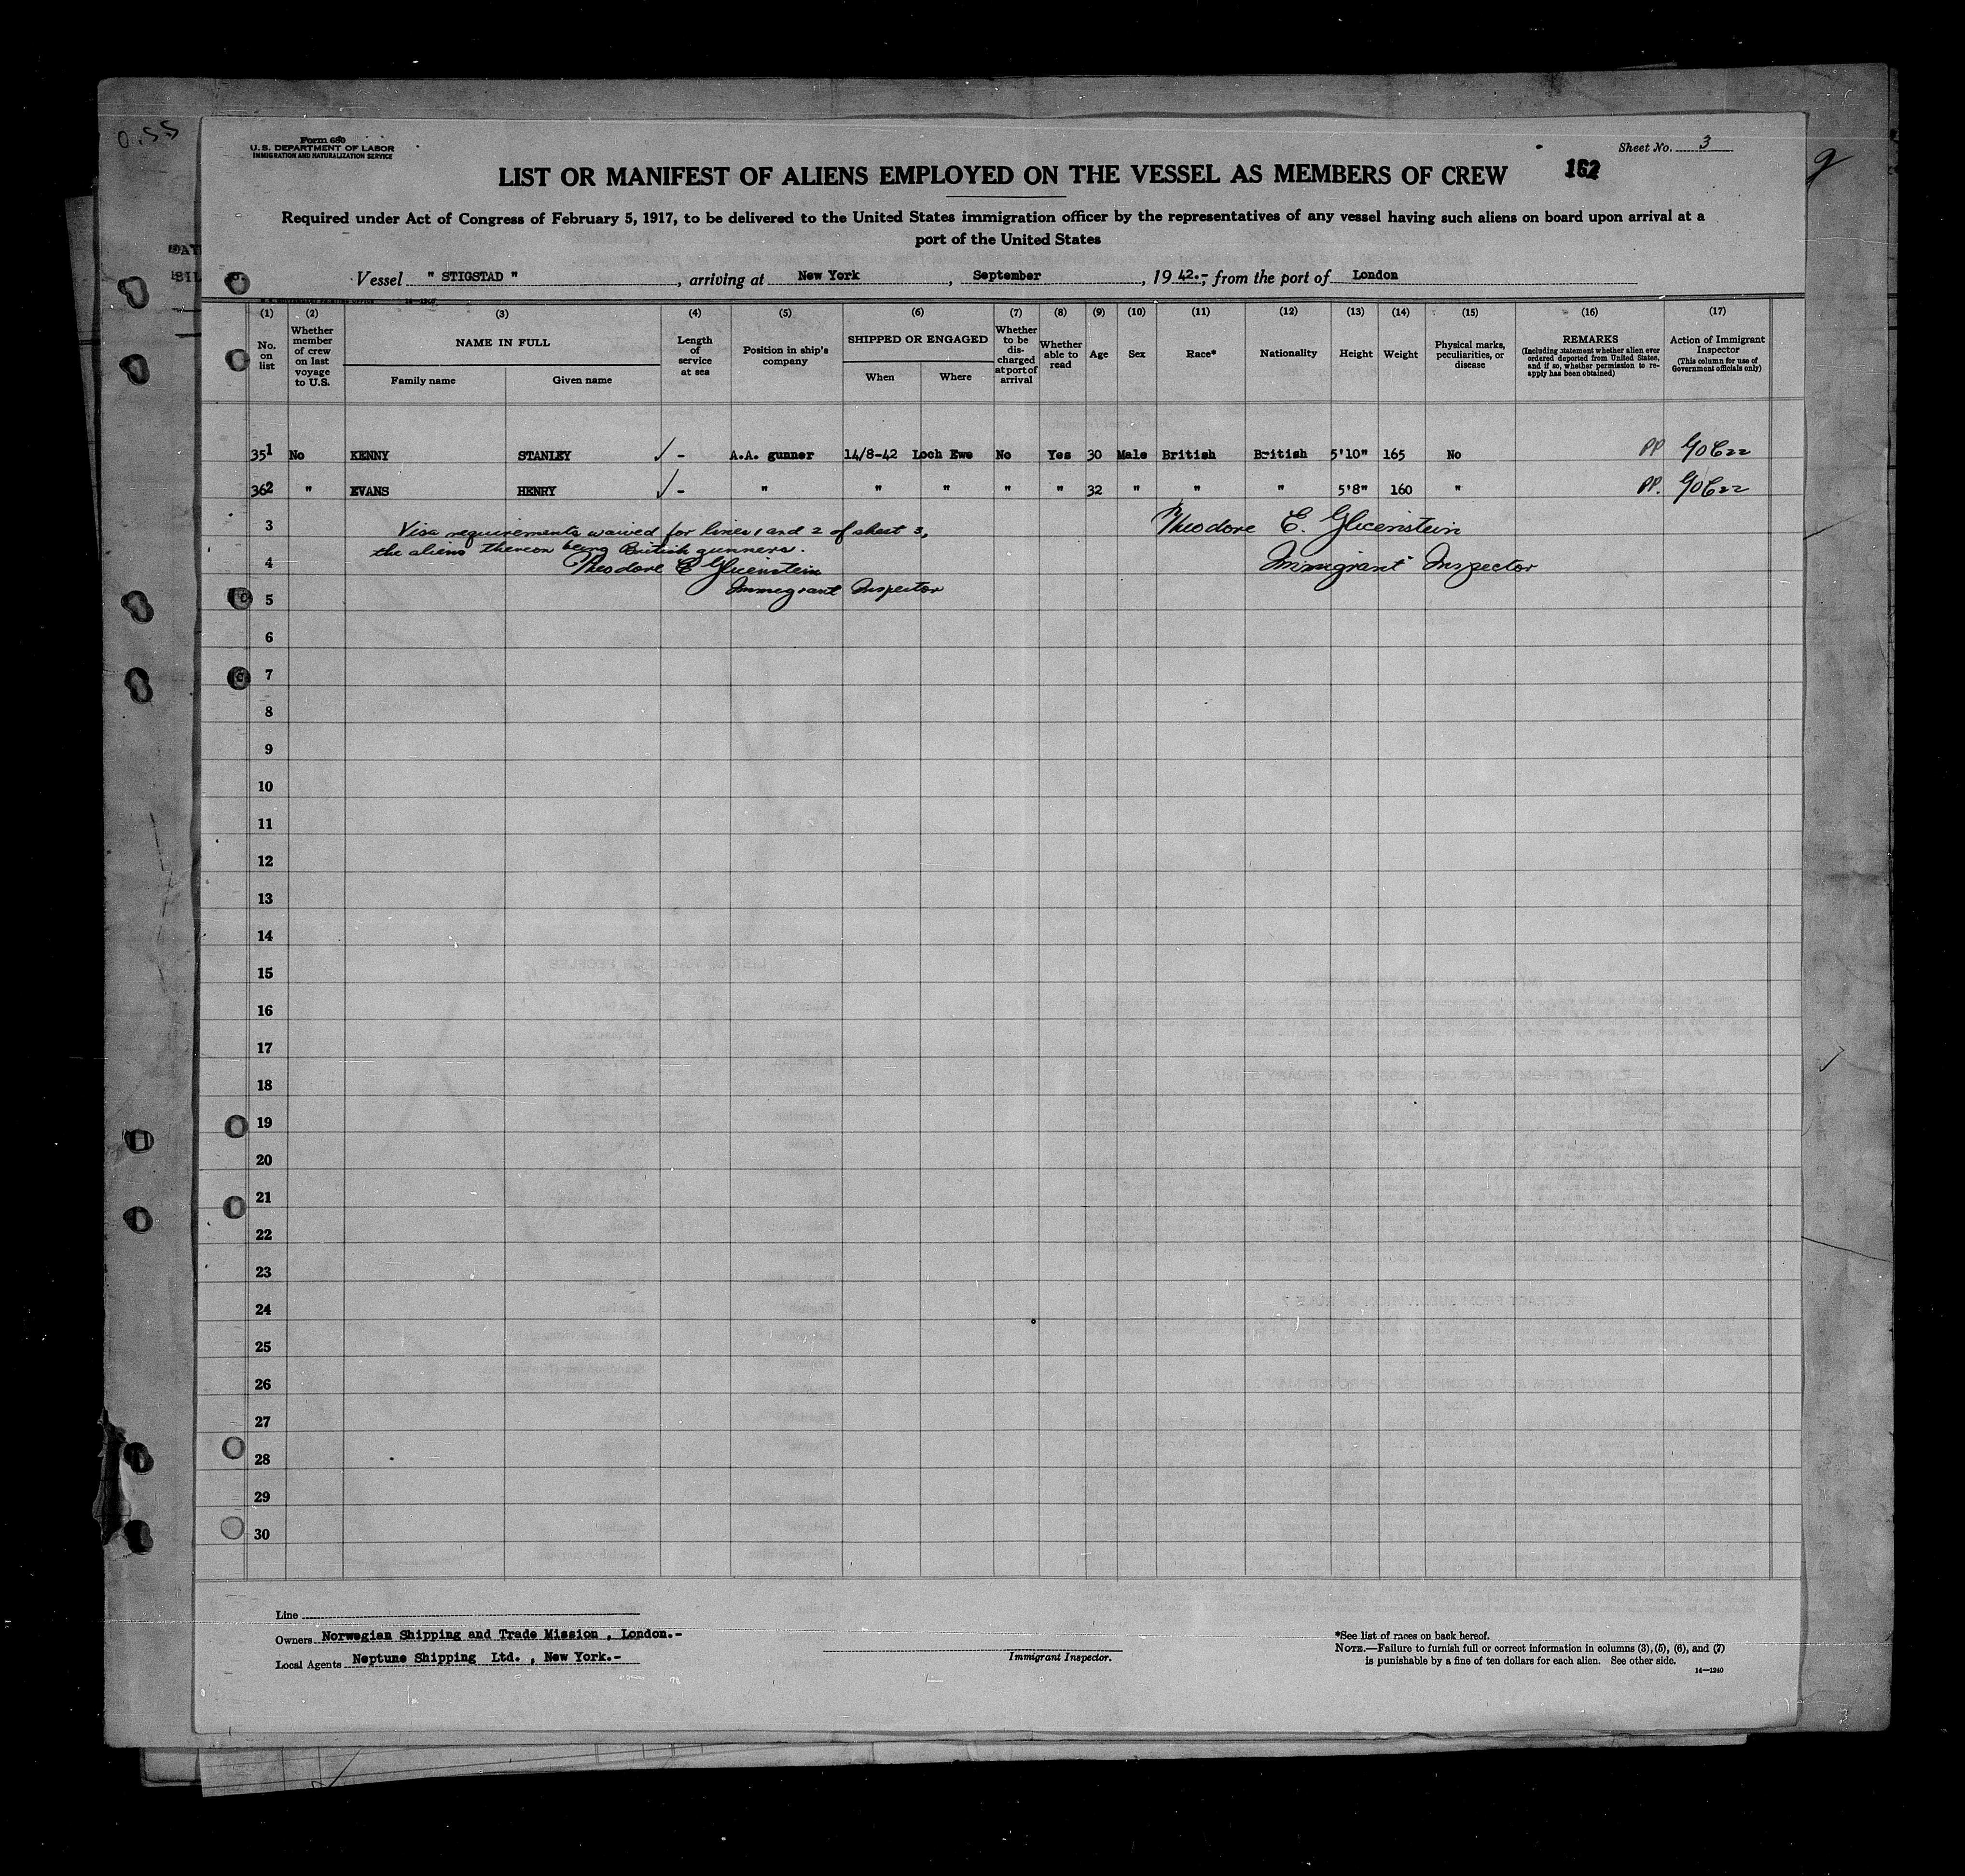 0.55
Form 680
U.S. DEPARTMENT OF LABOR
IMMIGRATION AND NATURALIZATION SERVICE
Sheet No. 3
LIST OR MANIFEST OF ALIENS EMPLOYED ON THE VESSEL AS MEMBERS OF CREW
162
Required under Act of Congress of February 5, 1917, to be delivered to the United States immigration officer by the representatives of any vessel having such aliens on board upon arrival at a
port of the United States
Vessel " STIGSTAD ", arriving at New York, September, 19 42.-, from the port of London
(1) No. on list
(2) Whether member of crew on last voyage to U.S.
(3) NAME IN FULL Family name Given name
(4) Length of service at sea
(5) Position in ship's company
(6) SHIPPED OR ENGAGED When Where
(7) Whether to be discharged at port of arrival
(8) Whether able to read
(9) Age
(10) Sex
(11) Race*
(12) Nationality
(13) Height
(14) Weight
(15) Physical marks, peculiarities, or disease
(16) REMARKS (Including statement whether alien ever ordered deported from United States, and if so, whether permission to re-apply has been obtained)
(17) Action of Immigrant Inspector (This column for use of Government officials only)
35 1 No KENNY STANLEY ✓ - A.A. gunner 14/8-42 Loch Ewe No Yes 30 Male British British 5'10" 165 No PP
36 2 " EVANS HENRY ✓ - " " " " " 32 " " " 5'8" 160 " PP.
3 Visa requirements waived for lines 1 and 2 of sheet 3, Theodore E. Glicenstein
the aliens thereon being British gunners.
4 Theodore E Glicenstein Immigrant Inspector
5 Immigrant Inspector
6
7
8
9
10
11
12
13
14
15
16
17
18
19
20
21
22
23
24
25
26
27
28
29
30
Line
Owners Norwegian Shipping and Trade Mission , London.-
Local Agents Neptune Shipping Ltd. , New York.-
Immigrant Inspector.
*See list of races on back hereof.
NOTE.—Failure to furnish full or correct information in columns (3), (5), (6), and (7)
is punishable by a fine of ten dollars for each alien. See other side.
14—1240